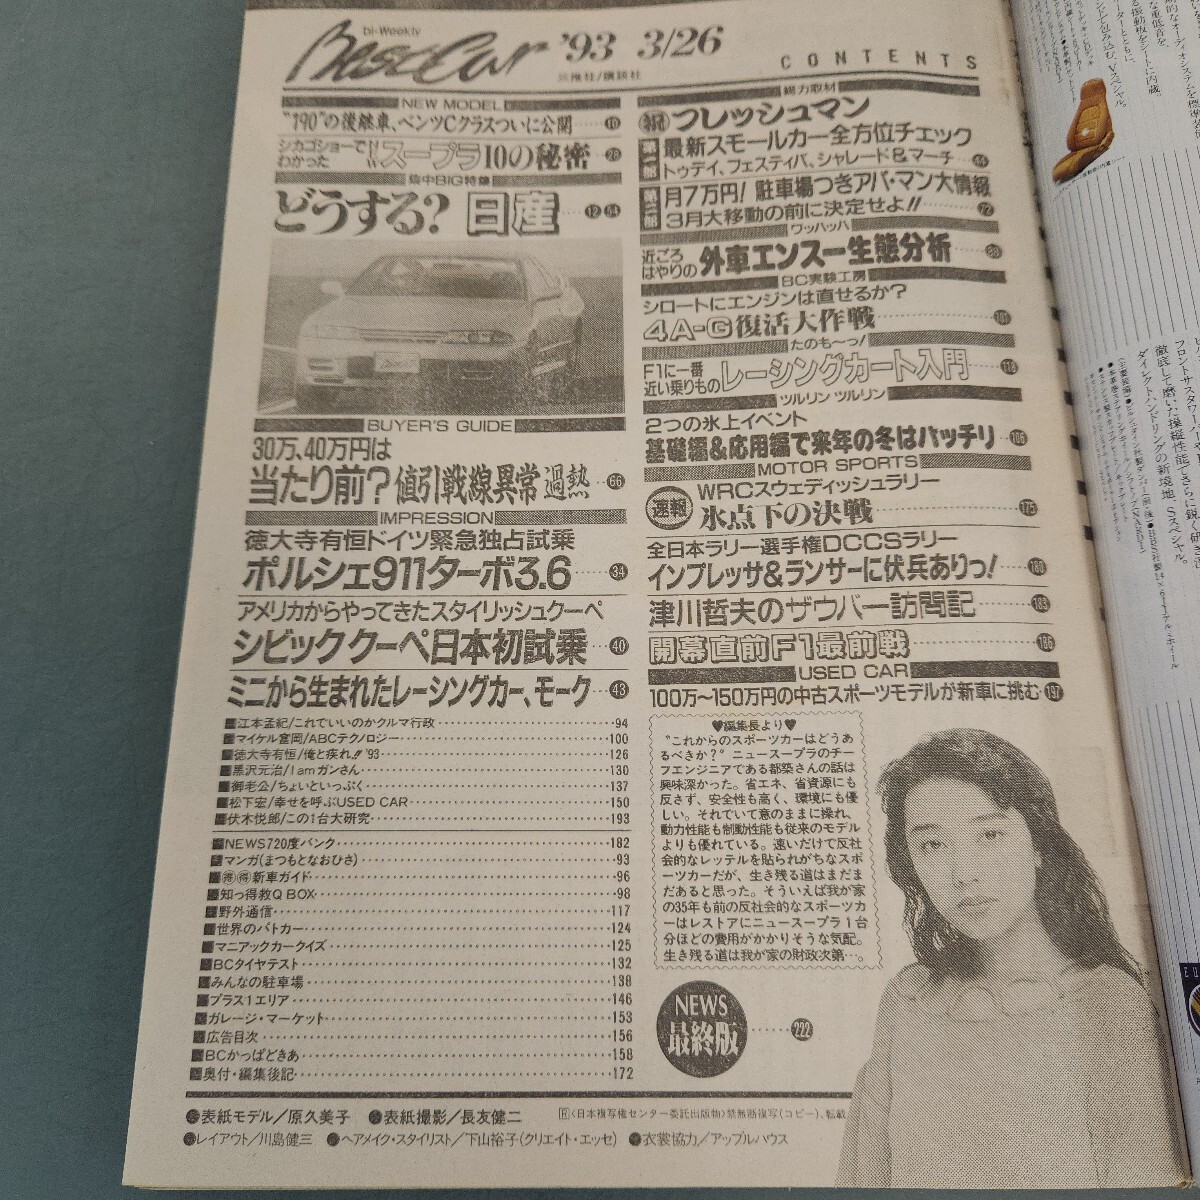 bi-Weekly
Best Car '93 3/26
三推社/講談社
CONTENTS
NEW MODEL
"190"の後継車、ベンツCクラスついに公開 16
シカゴショーで
わかった NEWスープラ10の秘密 28
集中BIG特集
どうする? 日産 12 54
BUYER'S GUIDE
30万、40万円は
当たり前?値引戦線異常過熱 66
IMPRESSION
徳大寺有恒ドイツ緊急独占試乗
ポルシェ911ターボ3.6 34
アメリカからやってきたスタイリッシュクーペ
シビッククーペ日本初試乗 40
ミニから生まれたレーシングカー、モーク 43
■江本孟紀/これでいいのかクルマ行政 94
■マイケル富岡/ABCテクノロジー 100
■徳大寺有恒/俺と疾れ!!'93 126
■黒沢元治/I amガンさん 130
■御老公/ちょいといっぷく 137
■松下宏/幸せを呼ぶUSED CAR 150
■伏木悦郎/この1台大研究 193
■NEWS720度バンク 182
■マンガ(まつもとなおひさ) 93
■得得新車ガイド 96
■知っ得救Q BOX 98
■野外通信 117
■世界のパトカー 124
■マニアックカークイズ 125
■BCタイヤテスト 132
■みんなの駐車場 138
■プラス1エリア 146
■ガレージ・マーケット 153
■広告目次 156
■BCかっぱどきあ 158
■奥付・編集後記 172
総力取材
祝フレッシュマン
第一部 最新スモールカー全方位チェック
トゥデイ、フェスティバ、シャレード&マーチ 44
第二部 月7万円! 駐車場つきアパ・マン大情報
3月大移動の前に決定せよ!! 72
ワッハッハ
近ごろ
はやりの 外車エンスー生態分析 88
BC実験工房
シロートにエンジンは直せるか?
4A-G復活大作戦 101
たのも〜っ!
F1に一番
近い乗りもの レーシングカート入門 118
ツルリン ツルリン
2つの氷上イベント
基礎編&応用編で来年の冬はバッチリ 106
MOTOR SPORTS
速報 WRCスウェディッシュラリー
氷点下の決戦 175
全日本ラリー選手権DCCSラリー
インプレッサ&ランサーに伏兵ありっ! 180
津川哲夫のザウバー訪問記 183
開幕直前F1最前戦 186
USED CAR
100万〜150万円の中古スポーツモデルが新車に挑む 197
♥編集長より♥
"これからのスポーツカーはどうあ
るべきか?" ニュースープラのチー
フエンジニアである都築さんの話は
興味深かった。省エネ、省資源にも
反さず、安全性も高く、環境にも優
しい。それていて意のままに操れ、
動力性能も制動性能も従来のモデル
よりも優れている。速いだけで反社
会的なレッテルを貼られがちなスポ
ーツカーだが、生き残る道はまだま
だあると思った。そういえば我が家
の35年も前の反社会的なスポーツカ
ーはレストアにニュースープラ1台
分ほどの費用がかかりそうな気配。
生き残る道は我が家の財政次第…。
NEWS
最終版 222
●表紙モデル/原久美子 ●表紙撮影/長友健二
R〈日本複写権センター委託出版物〉禁無断複写(コピー)、転載
●レイアウト/川島健三 ●ヘアメイク・スタイリスト/下山裕子(クリエイト・エッセ) ●衣裳協力/アップルハウス